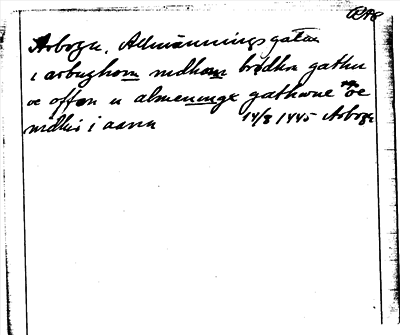 Arboga, Allmänningsgatan
i arbughom nidhan brödhra gathu
oc offan u almeninge gathone oc
nidhr i aana 14/8 1445 Arboga